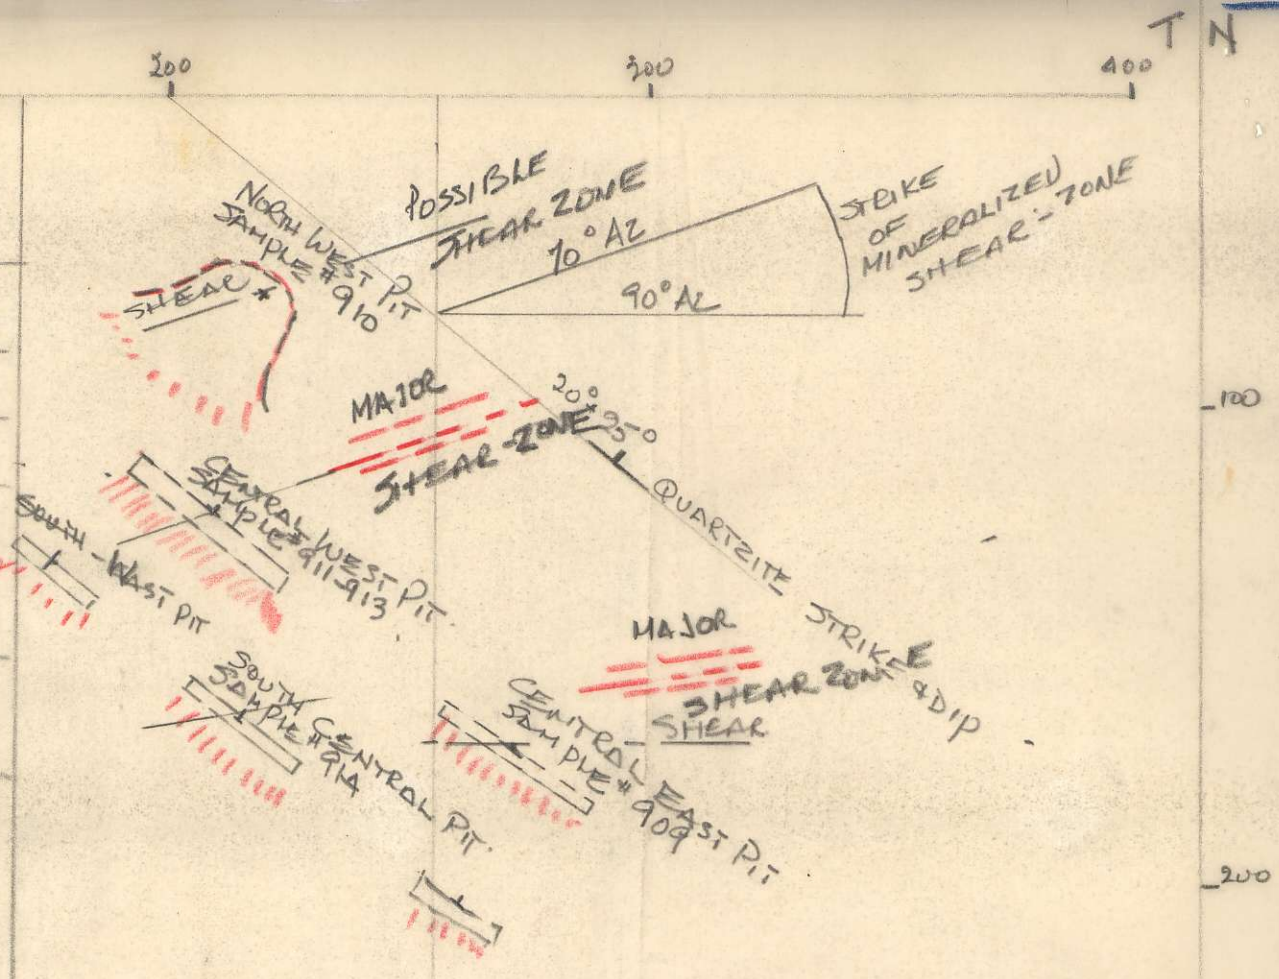 T N
200
300
400
POSSIBLE
SHEAR ZONE
70° AZ
90° AZ
STRIKE
OF
MINERALIZED
SHEAR-ZONE
NORTH WEST PIT
SAMPLE # 910
SHEAR
100
MAJOR
SHEAR-ZONE
20°
25°
QUARTZITE STRIKE & DIP
CENTRAL WEST PIT
SAMPLE # 911-913
SOUTH-WAST PIT
MAJOR
SHEAR ZONE
SHEAR
SOUTH CENTRAL PIT
SAMPLE # 914
CENTRAL EAST PIT
SAMPLE # 909
200